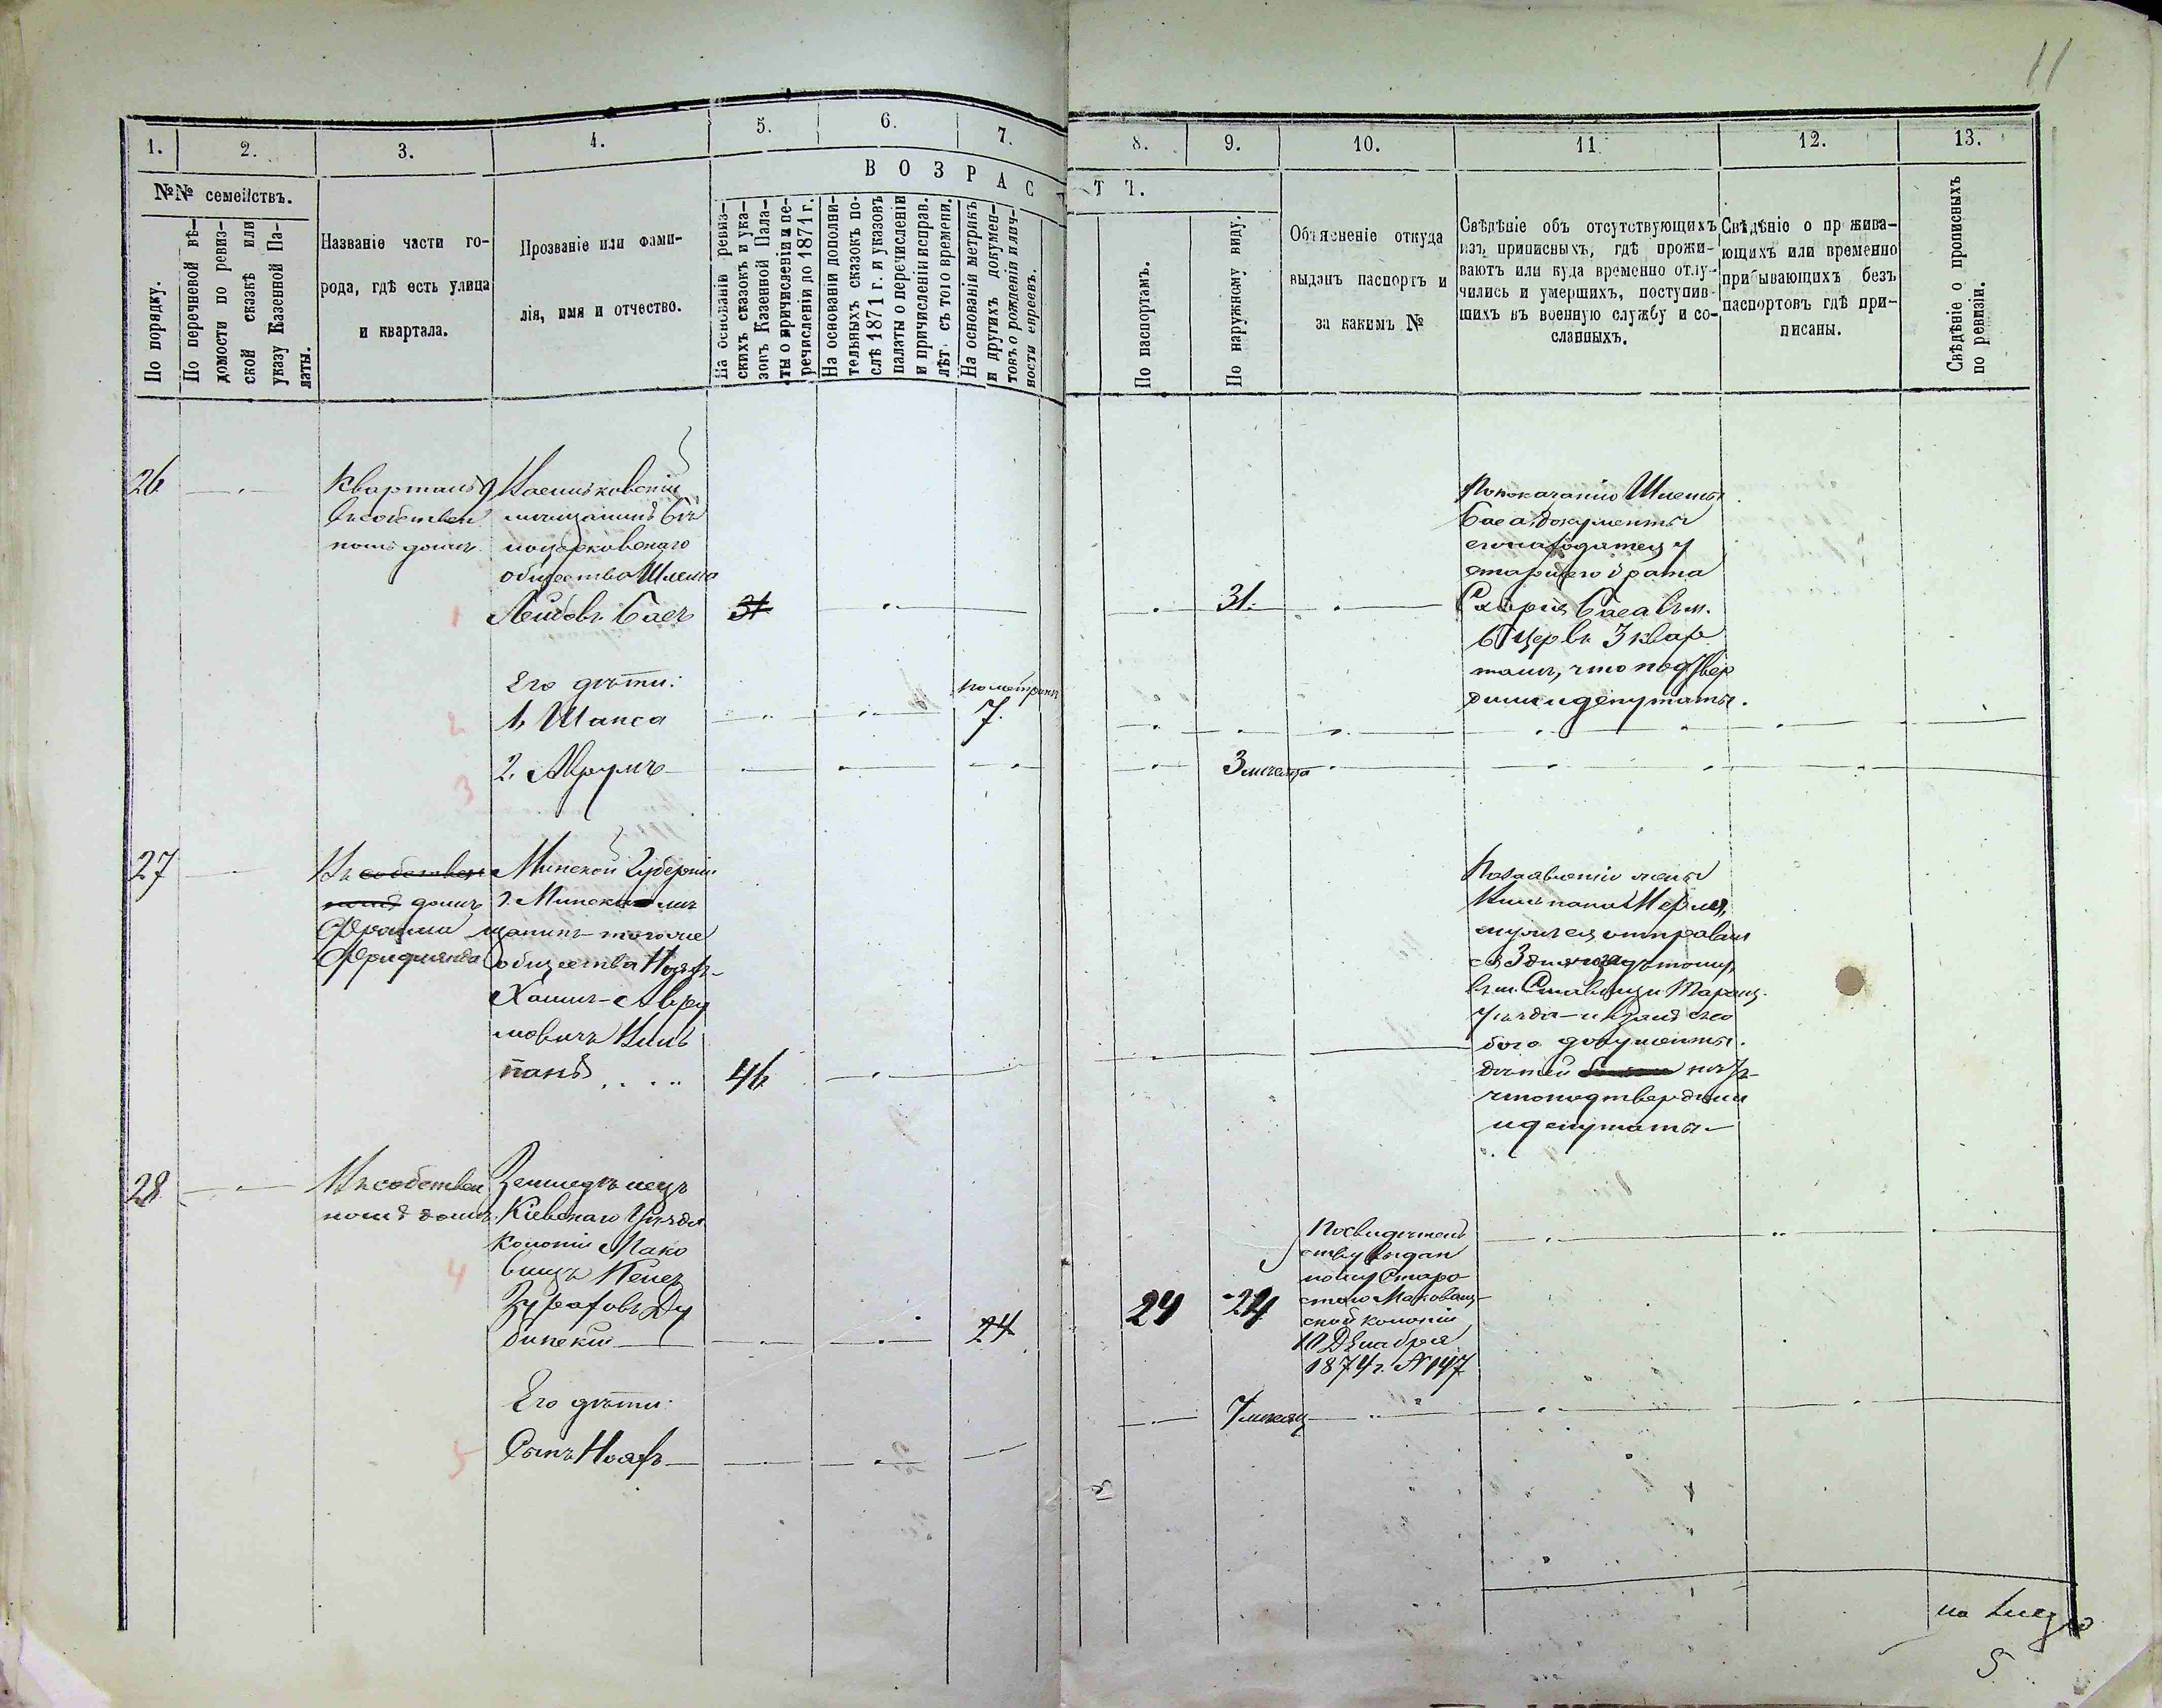 11
1.
2.
3.
4.
5.
6.
7.
8.
9.
10.
11.
12.
13.
№№ семействъ.
ВОЗРАСТЪ.
По порядку.
По перечневой вѣ-
домости по ревиз-
ской сказкѣ или
указу Казенной Па-
латы.
Названіе части го-
рода, гдѣ есть улица
и квартала.
Прозваніе или фами-
лія, имя и отчество.
На основаніи ревиз-
скихъ сказокъ и ука-
зовъ Казенной Пала-
ты о причисленіи и пе-
речисленіи до 1871 г.
На основаніи дополни-
тельныхъ сказокъ по-
слѣ 1871 г. и указовъ
палаты о перечисленіи
и причисленіи исправ.
лѣт. съ того времени.
На основаніи метрикъ
и другихъ докумен-
товъ о рожденіи и лич-
ности евреевъ.
По паспортамъ.
По наружному виду.
Объясненіе откуда
выданъ паспортъ и
за какимъ №
Свѣдѣніе объ отсутствующихъ
изъ приписныхъ, гдѣ прожи-
ваютъ или куда временно отлу-
чились и умершихъ, поступив-
шихъ въ военную службу и со-
сланныхъ.
Свѣдѣніе о прожива-
ющихъ или временно
прибывающихъ безъ
паспортовъ гдѣ при-
писаны.
Свѣдѣніе о прописныхъ
по ревизіи.
26
Кварталъ 9
въ собствен
номъ домѣ
мѣщанинъ Бѣ
лоцерковскаго
общества Шлема
1 Лейбовъ Баст
31
31.
По показанію Шлемы
документы
его находятся у
старшаго брата
Б Церкви 3 квар
талѣ, что подтвер
дили и депутаты.
Его дѣти:
2 1, Шапса
по метрикѣ
7.
3 2, Аврумъ
3 мѣсяца
27
Въ собствен
номъ домѣ
Фроима
Фридлянда
Минской Губерніи
г. Минска мѣ
щанинъ того же
общества Ноахъ
Хаимъ-Авру
мовичъ Киль
панъ
46
По заявленію жены
Мужъ ея отправил
ся 3 дня назадъ тому,
въ м. Ставищи Таращ.
уѣзда и взялъ съ со
бою документы.
дѣтей нѣтъ
что подтвердили
и депутаты
28
Въ собствен
номъ домѣ
Земледѣлецъ
Кіевскаго Уѣзда
Колоніи Мако
4 вищъ
Ду
бинскій
24
24
24
По свидѣтель
ству выдан
ному Старо
стою Маковищ-
ской колоніи
10 Декабря
1874 г. №147
Его дѣти:
5 Сынъ Ноахъ
7 мѣсяц
5